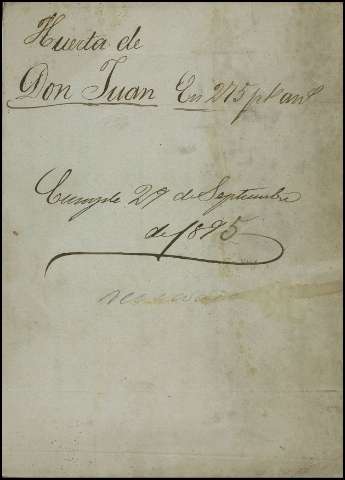 Huerta de
Don Juan En 275 pl anl
Cumple 29 de Septiembre
de 1895